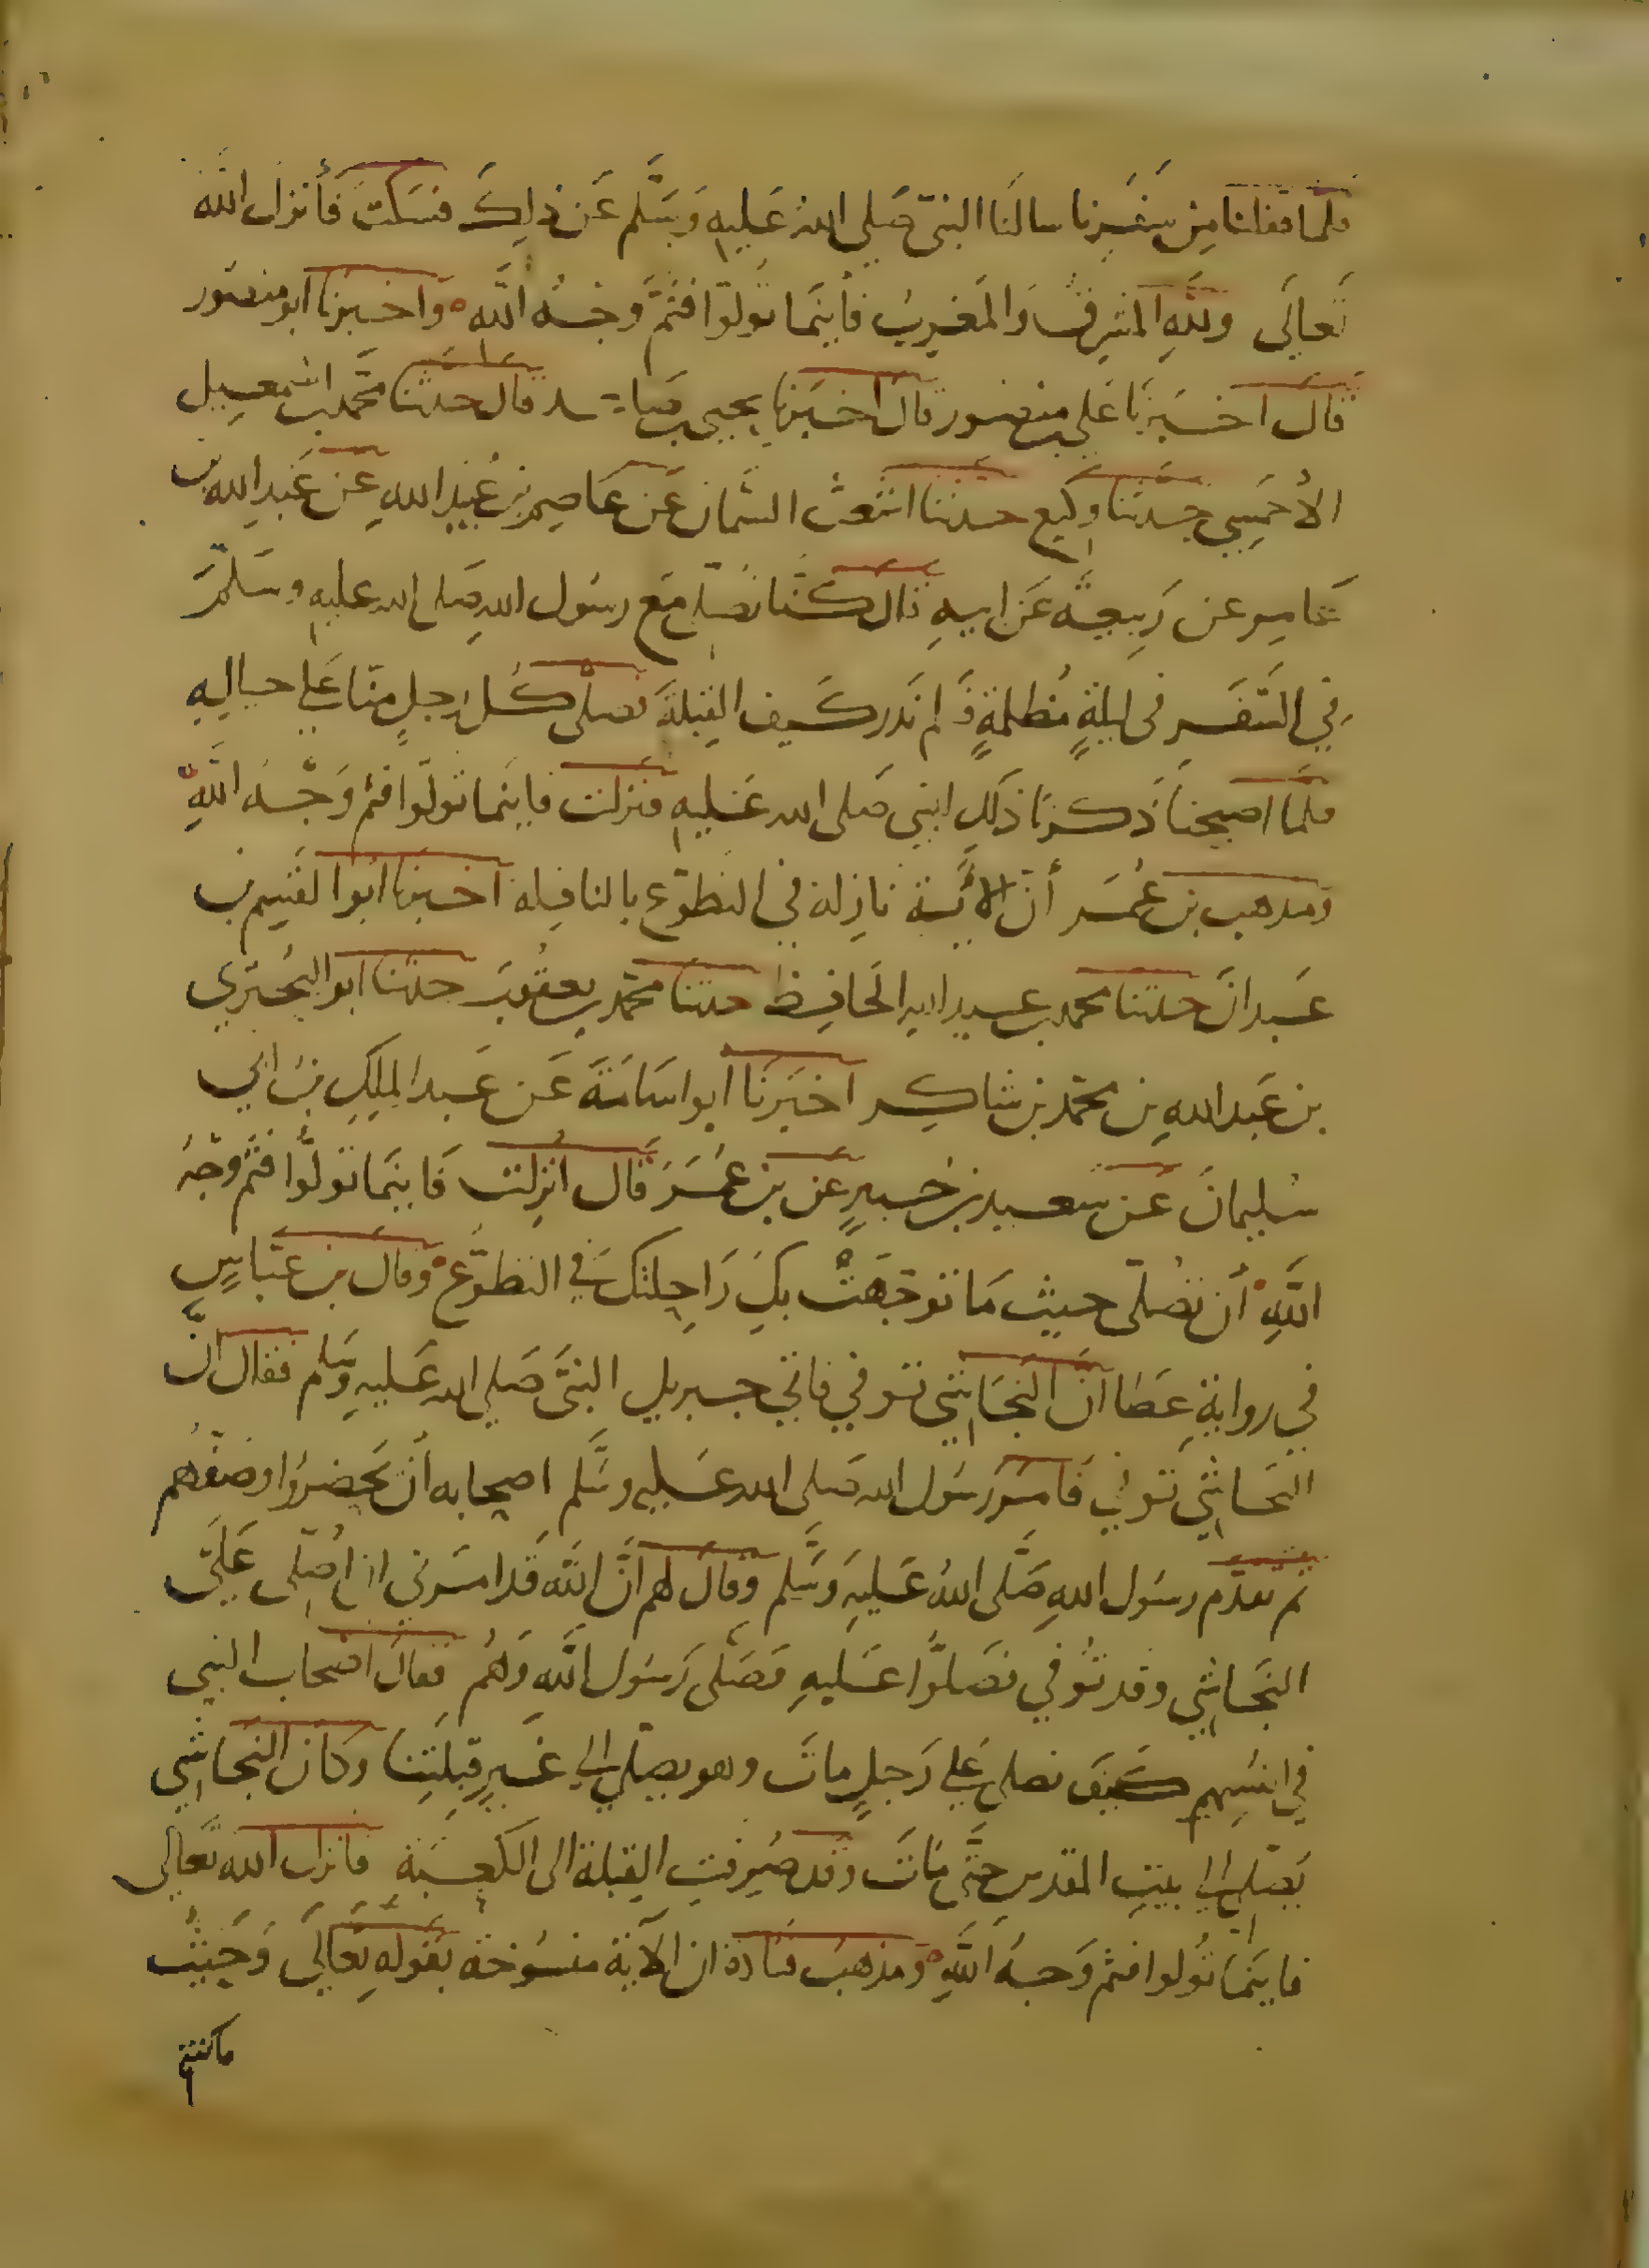 فلما قفلنا مِن سَفَرِنا سالنَا النبيّ صَلى اللهُ عَليهِ وَسَلَّم عَن ذلِكَ فسَكَتَ فَأنزل اللهُ
تَعالَى وللهِ المشرِقُ وَالمَغرِبُ فأينَمَا تُولّوا فثَمَّ وَجْهُ اللَّهِ وَاخبرنا ابو منصور
قال اخبَرنَا عَلي بن منصور قال اخبَرنا يحيى بن صاعد قال حدثنا محمد بن اسمعيل
الأحمَسِي حَدثنا وكيع حدثنا اشعث السَّمان عَن عَاصِم بن عُبَيد اللهِ عَن عَبد الله بن
عَامِر عن رَبيعَة عَن ابيهِ قال كنّا نصَلي مَع رسُول اللهِ صَلى الله عليهِ وسَلمَّ
في السَّفَر في ليلةٍ مُظلمةٍ فَلم نَدر كَيف القِبلَةَ فصلّى كُل رَجلٍ منّا عَلى حيالِهِ
فلمَّا اصبحنَا ذَكرنَا ذلِكَ النبي صَلى الله عَليهِ فنزلت فاينَما تولّوا فثم وَجْهُ اللَّهِ
ومذهب بن عُمَر أنّ الأيَة نازِلة في التطوّع بالنافِلة اخبرنا ابُوا القَسِم بن
عَبدانَ حدثنا محمد بن عبد الله الحَافِظ حدثنا محمّد بن يعقُوبَ حدثنا ابو البُحتري
بن عَبد اللهِ بن محمّد بن شاكِر اخبَرنَا ابو اسَامَةَ عَن عَبد المِلِكِ بن ابي
سُليمانَ عَن سَعيد بن جُبيرٍ عَن بن عُمَرَ قال انزِلَت فَاينَمَا تولُّوا فثَم وَجْهُ
اللَّهِ أن تصُلّى حيث مَا توَجّهَتْ بكَ رَاحِلتكَ في التطوّع وقال بن عبّاسٍ
في روايةِ عَطا انَّ النجَاشي تُوفي فاتى جبريل النبيَّ صَلي الله عَليهِ وسَلم فقال انّ
النجَاشي تُوفي فَامَرَ رسُول الله صَلى الله عَليه وسَلَّم اصحابه أنّ يَحضروا وصَفّهُم
ثم تقدّم رسُول اللهِ صَلَّى اللهُ عَليهِ وَسَلَّم وقالَ لهم انَّ اللَّهَ قَد امَرني ان اُصَلى عَلَى
النجَاشِي وقد تُوفي فصَلوُّا عَليهِ فصَلَّى رَسُول اللَّهِ وَهُم فقالَ اصْحاب النبي
في انفسِهِم كَيفَ نصلي عَلى رَجلٍ ماتَ وهو يصلّي الى غَير قِبلَتِنا وكان النجَاشي
يَصَلي الى بيتِ المقدسِ حتَّى مَاتَ وقد صُرِفتِ القبلة الى الكعبَة فانزل الله تعَالى
فاينَمَا تُولوا فثم وَجهُ اللَّهِ ومَذهبُ قتادة ان الايَة منسُوخة بقَولهِ تعَالَى وَحَيثُ
ماكنتم